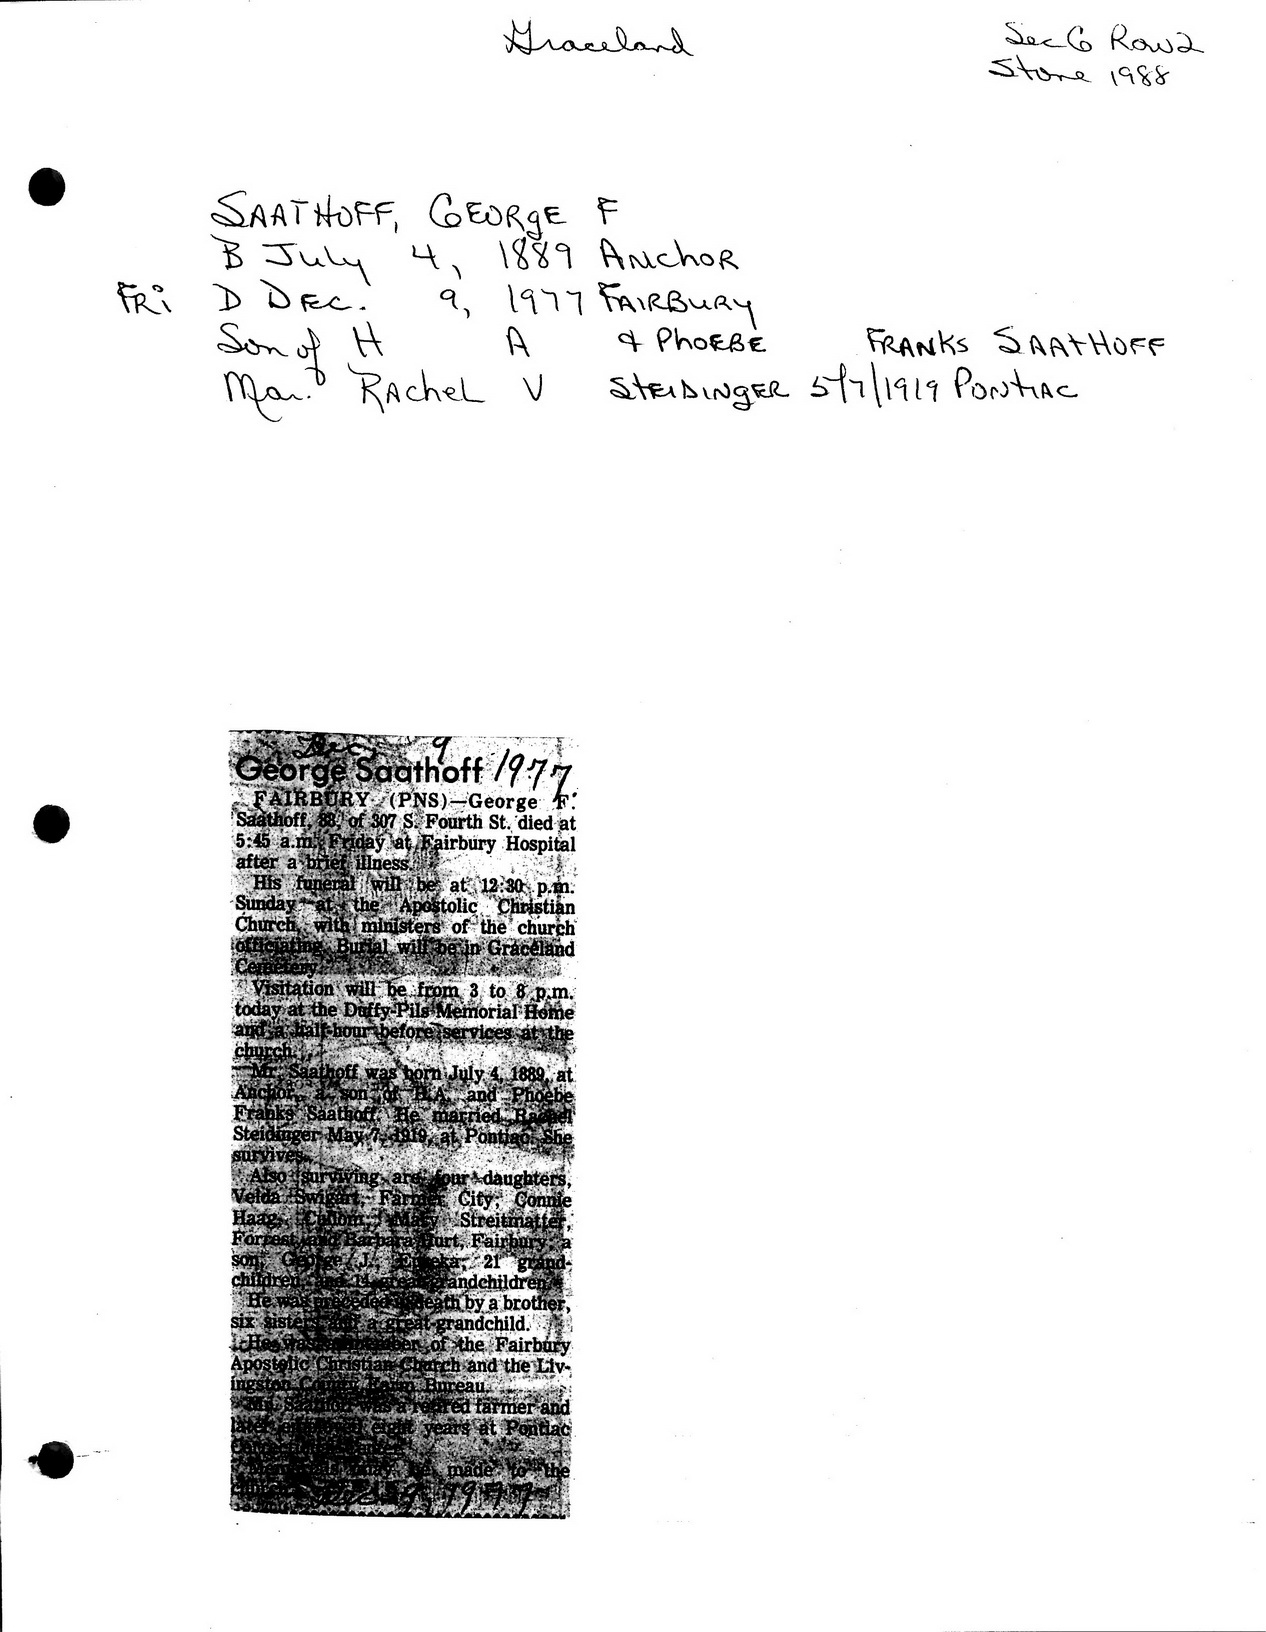 Graceland
Sec 6 Row 2
Stone 1988
SAATHOFF, GEORGE F
B July 4, 1889 ANCHOR
FRI D DEC. 9, 1977 FAIRBURY
Son of H A & PHOEBE FRANKS SAATHOFF
Mar. RACHEL V STEIDINGER 5/7/1919 PONTIAC
Dec. 9
George Saathoff 1977
FAIRBURY (PNS)—George F.
Saathoff, 88, of 307 S. Fourth St. died at
5:45 a.m. Friday at Fairbury Hospital
after a brief illness.
His funeral will be at 12:30 p.m.
Sunday at the Apostolic Christian
Church, with ministers of the church
officiating. Burial will be in Graceland
Cemetery.
Visitation will be from 3 to 8 p.m.
today at the Duffy-Pils Memorial Home
and a half-hour before services at the
church.
Mr. Saathoff was born July 4, 1889, at
Anchor, a son of H.A. and Phoebe
Franks Saathoff. He married Rachel
Steidinger May 7, 1919, at Pontiac. She
survives.
Also surviving are four daughters,
Velda Swigart, Farmer City; Connie
Haag, Cullom; Mary Streitmatter,
Forrest, and Barbara Hurt, Fairbury; a
son, George J., Eureka; 21 grand-
children and 14 great-grandchildren.
He was preceded in death by a brother,
six sisters and a great-grandchild.
He was a member of the Fairbury
Apostolic Christian Church and the Liv-
ingston County Farm Bureau.
Mr. Saathoff was a retired farmer and
later eight years at Pontiac
may be made to the
church.
Dec. 9, 1977